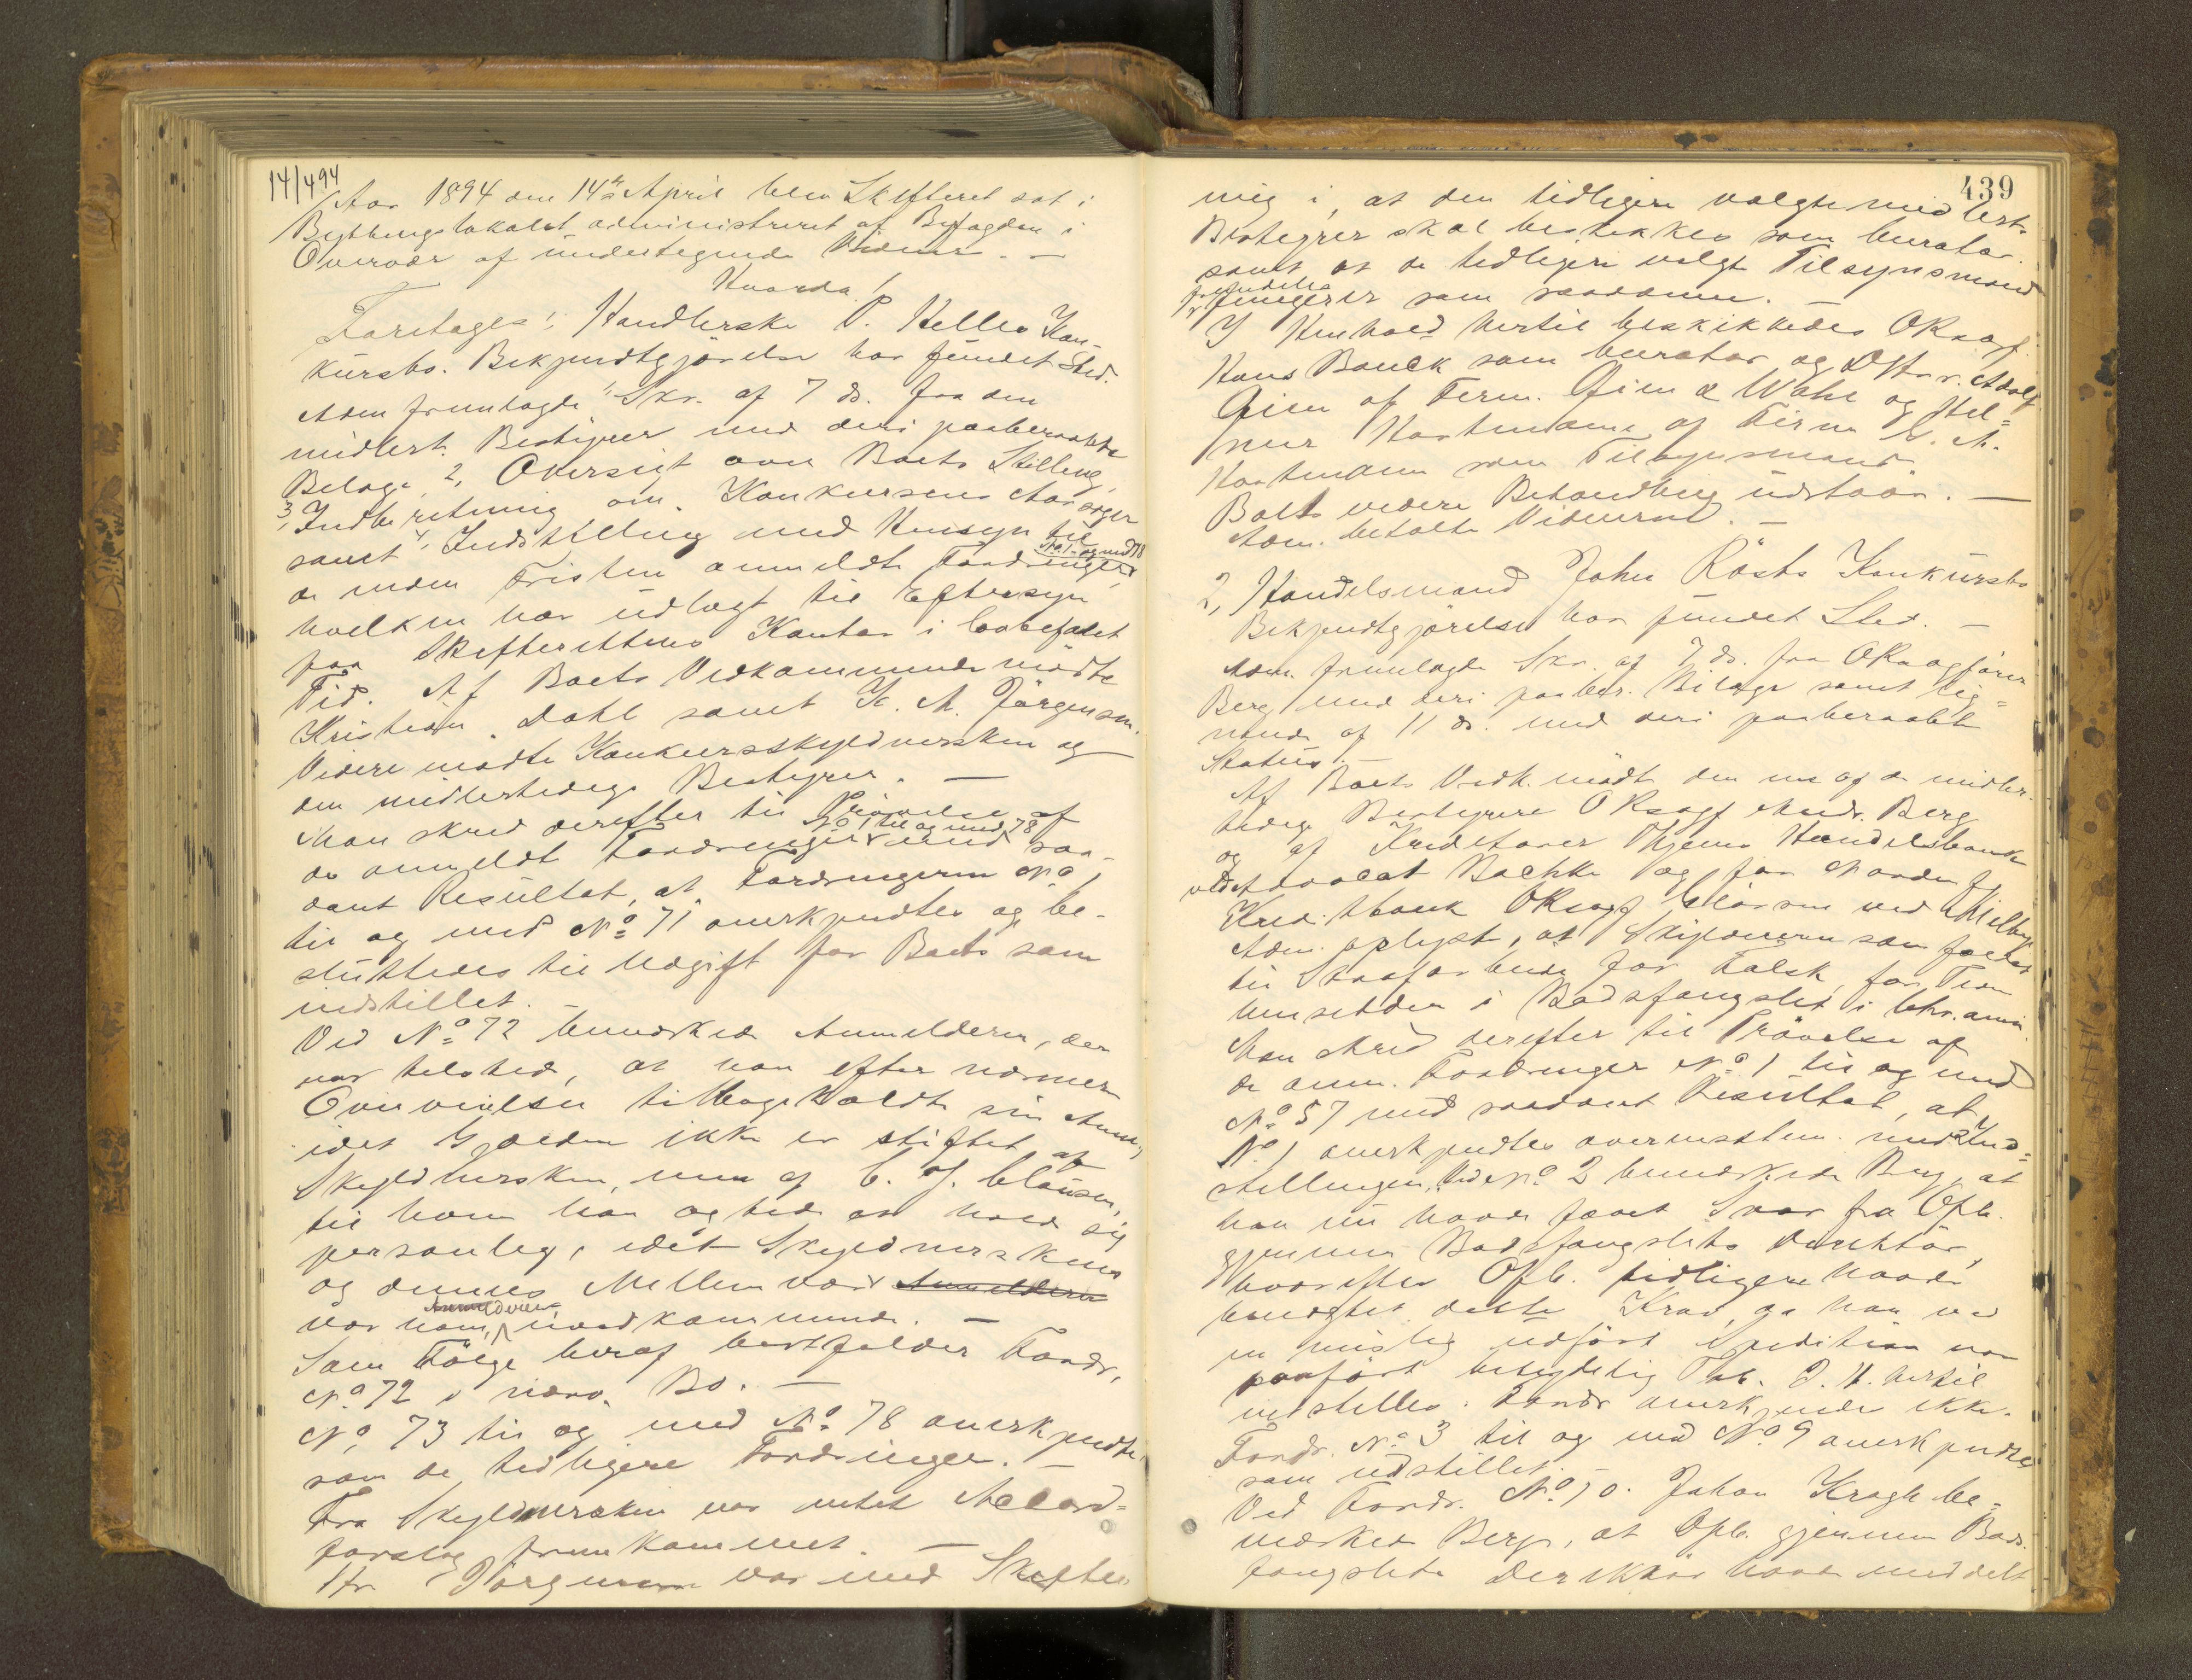 14/4 94
Aar 1894 den 14de April blev Skifteret sat i
Bythingslokalet administreret af Byfogden i
Overvær af undertegnede Vidner. —
Hvorda!
Foretages: 1, Handlerske P. Helles Kon-
kursbo. Bekjendtgjørelse har fundet Sted.
Adm fremlagde 1, Skr. af 7 ds. fra den
midlert. Bestyrer med deri paaberaabte
Bilage, 2, Oversigt over Boets Stilling,
3, Indberetning om Konkursens Aarsager
samt 4, Indstilling med Hensyn til
de inden Fristen anmeldte Fordringer
No 1 - og med 78
hvilken har udlagt til Eftersyn
paa Skifterettens Kontor i lovbefalet
Tid. Af Boets Vedkommende mødte
Kristian Dahl samt K. A. Jörgensen.
Videre mødte Konkursskyldnersken og
den midlertidige Bestyrer. —
Man skred derefter til Prøvelse af
de anmeldte Fordringer No 1 til og med 78 med saa-
dant Resultat, at Fordringerne No 1
til og med No 71 anerkjendtes og be-
sluttedes til Udgift for Boet som
indstillet. —
Ved No 72 bemærkede Anmelderen, der
var tilsted, at han efter nærmere
Overveielse tilbageholdt sin Anm.,
idet Gjælden ikke er stiftet af
Skyldnersken, men af C. J. Clausen,
til hvem han agtede at holde sig
personlig, idet Skyldnerskens
og dennes Mellemvær Anmelderen
var ham, Anmelderen uvedkommende. —
Som Følge heraf bortfalder Fordr.
No 72 i nærv. Bo. —
No 73 til og med No 78 anerkjendtes
som de tidligere Fordringer. —
Fra Skyldnersken var intet Akkord-
forslag fremkommet. —
Hr Jörgensen var med Skifte
439
mig i, at den tidligere valgte midlert.
Bestyrer skal beskikkes som curator.
samt at de tidligere valgte Tilsynsmænd
fremdeles fungerer som saadanne. —
I Henhold hertil beskikkedes OKsagf.
Hans Bauck som curator og DHrr. Adolf
Øien af Firm. Øien & Wahl og Hil-
mer Hartmann af Firma
Hartmann som Tilsynsmænd.
Boets videre Behandling udstaar. —
Adm. betalte Vidnerne. —
2, Handelsmand John Rösts Konkursbo
Bekjendtgjørelse har fundet Sted. —
Adm. fremlagde Skr. af 7 ds. fra OKsagfører
Berg med deri paaber. Bilage samt lig-
nende af 11 ds. med deri paaberaabt
Status. —
Af Boets Vedk. mødte den ene af de midler-
tidige Bestyrere OKsagf Berg
og af Kreditorer Thjems Handelsbank
ved Advokat Bachke og for Norden fj.
Kred. bank OKsagf
Adm. oplyste, at Skyldneren som
til Strafarbeide for Falsk, for Tiden
hensidder i Bodsfængslet i Chr.ania
Man skred derefter til Prøvelse af
de anm. Fordringer No 1 til og med
No 57 med saadant Resultat, at
No 1 anerkjendtes overensstem. med Ind-
stillingen. Ved No 2 bemærkede Berg, at
han nu havde faaet Svar fra Opb.
gjennem Bodsfængslets Direktör,
hvorefter Opb. tidligere havde
benægtet dette Krav, da han ved
en uriktig udfört Expedition var
paafört betydelig Tab. I H. hertil
indstilles. Fordr anerkjendes ikke.
Fordr. No 3 til og med No 9 anerkjendtes
som indstillet. —
Ved Fordr. No 10. Johan Kragh be-
mærkede Berg, at Opb. gjennem Bods-
fængslets Direktör havde meddelt